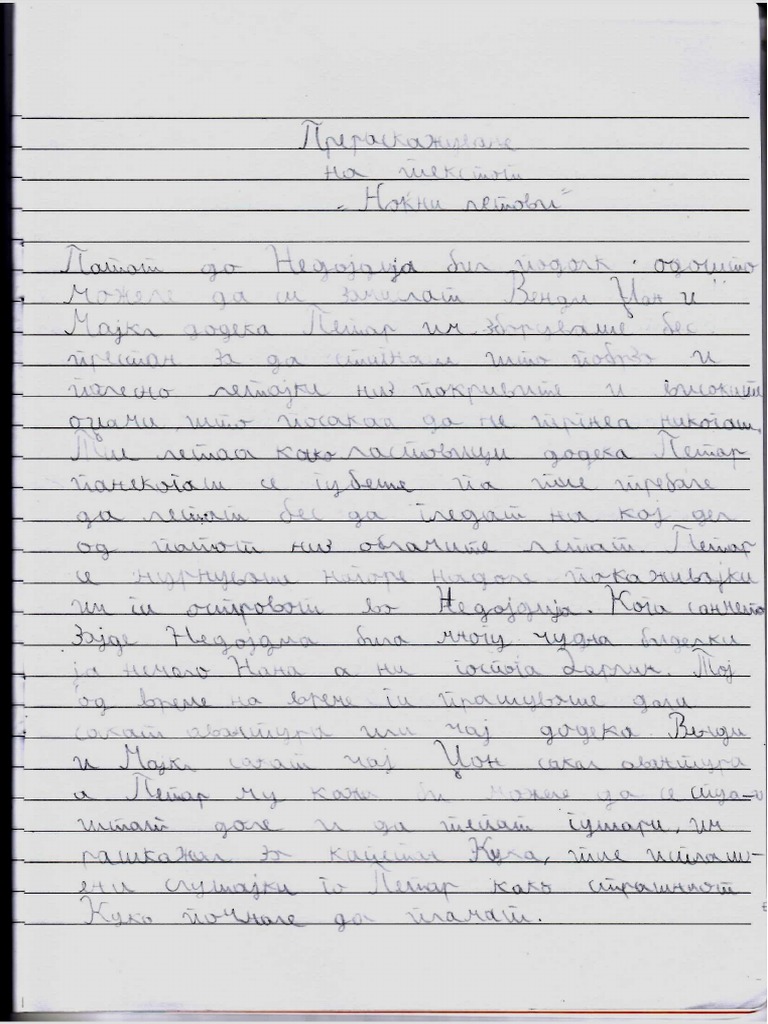 Прераскажување
на текстот
„Ноќни летови“
Патот до Недојдија бил подолг одошто
можеле да си замислат Венди Џон и
Мајкл додека Петар им зборуваше бес
престан за да стигнам што побрзо и
полесно летајќи низ покривите и високите
оџаци што посакаа да не тргнеа никогаш.
Тие летаа како ластовици додека Петар
понекогаш се губеше па тие требале
да летат бес да гледат на кој дел
од патот низ облачите летат. Петар
се нурнуваше нагоре надоле покаживајќи
им ги островот во Недојдија. Кога сонцето
зајде Недојдија била многу чудна бидејќи
ја немало Нана а ни госпоѓа Дарлин. Тој
од време на време ги прашуваше дали
сакат авантура или чај додека Венди
и Мајкл сакат чај Џон сакал авантура
а Петар му кажа би можеле да се спу-
штат доле и да тепат гусари, им
раскажал за капетан Кука, тие исплаш-
ени слушајќи го Петар како страшниот
Куко почнале да плачат.